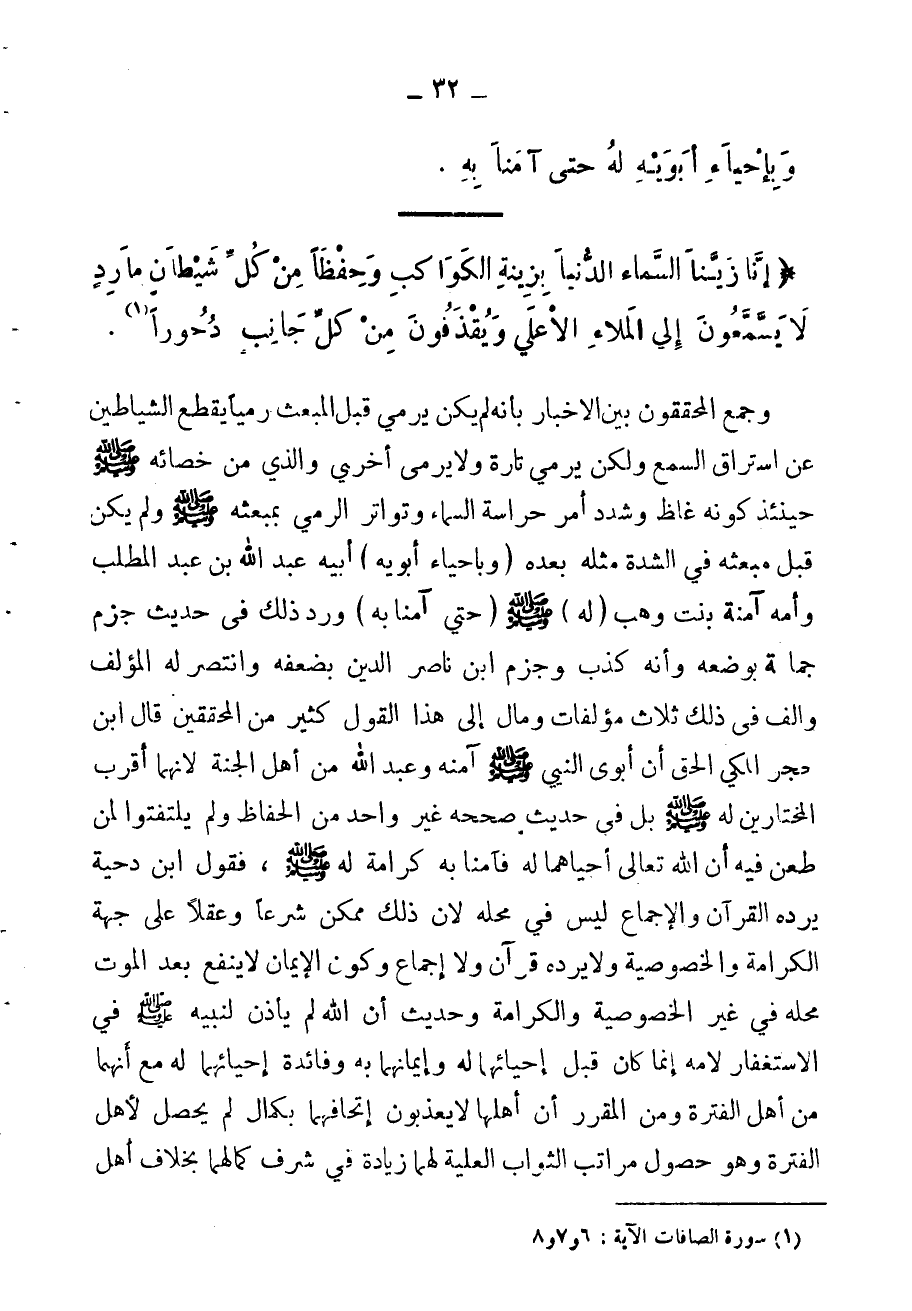 ـ ٣٢ ـ
وَبِإحْياَءِ أبَوَيْهِ لهُ حتى آمَناَ بِهِ .
﴿ إنَّا زَيَّناَ السَّماء الدُّنياَ بِزِينةِ الكَوَاكبِ وَحِفْظَاً مِنْ كُلِّ شَيْطاَنٍ ماَرِدٍ
لاَ يَسَّمَّعُونَ إلي المَلاءِ الأعْلَي وَيُقْذَفُونَ مِنْ كلِّ جَانِبٍ دُحُوراً(١) .
وجمع المحققون بين الاخبار بأنه لم يكن يرمي قبل المبعث رمياً يقطع الشياطين
عن استراق السمع ولكن يرمي تارة ولا يرمى أخري والذي من خصائه ﷺ
حينئذ كونه غاظ وشدد أمر حراسة السماء وتواتر الرمي بمبعثه ﷺ ولم يكن
قبل مبعثه في الشدة مثله بعده (وباحياء أبويه) أبيه عبد الله بن عبد المطلب
وأمه آمنة بنت وهب (له) ﷺ (حتي آمنا به) ورد ذلك فى حديث جزم
جما ة بوضعه وأنه كذب وجزم ابن ناصر الدين بضعفه وانتصر له المؤلف
والف فى ذلك ثلاث مؤلفات ومال إلى هذا القول كثير من المحققين قال ابن
حجر المكي الحق أن أبوى النبي ﷺ آمنه وعبد الله من أهل الجنة لانهما أقرب
المختارين له ﷺ بل في حديث صححه غير واحد من الحفاظ ولم يلتفتوا لمن
طعن فيه أن الله تعالى أحياهما له فآمنا به كرامة له ﷺ ، فقول ابن دحية
يرده القرآن والإجماع ليس في محله لان ذلك ممكن شرعاً وعقلاً على جهة
الكرامة والخصوصية ولا يرده قرآن ولا إجماع وكون الإيمان لا ينفع بعد الموت
محله في غير الخصوصية والكرامة وحديث أن الله لم يأذن لنبيه ﷺ في
الاستغفار لامه إنما كان قبل إحيائها له وإيمانها به وفائدة إحيائهما له مع أنهما
من أهل الفترة ومن المقرر أن أهلها لا يعذبون إتحافهما بكمال لم يحصل لأهل
الفترة وهو حصول مراتب الثواب العلية لهما زيادة في شرف كمالهما بخلاف أهل
(١) سورة الصافات الآية : ٦و٧و٨